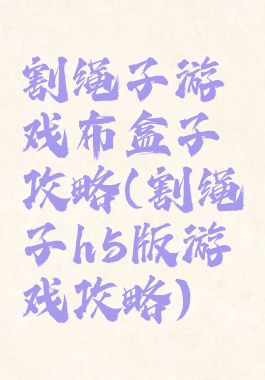 割绳子游
戏布盒子
攻略(割绳
子h5版游
戏攻略)